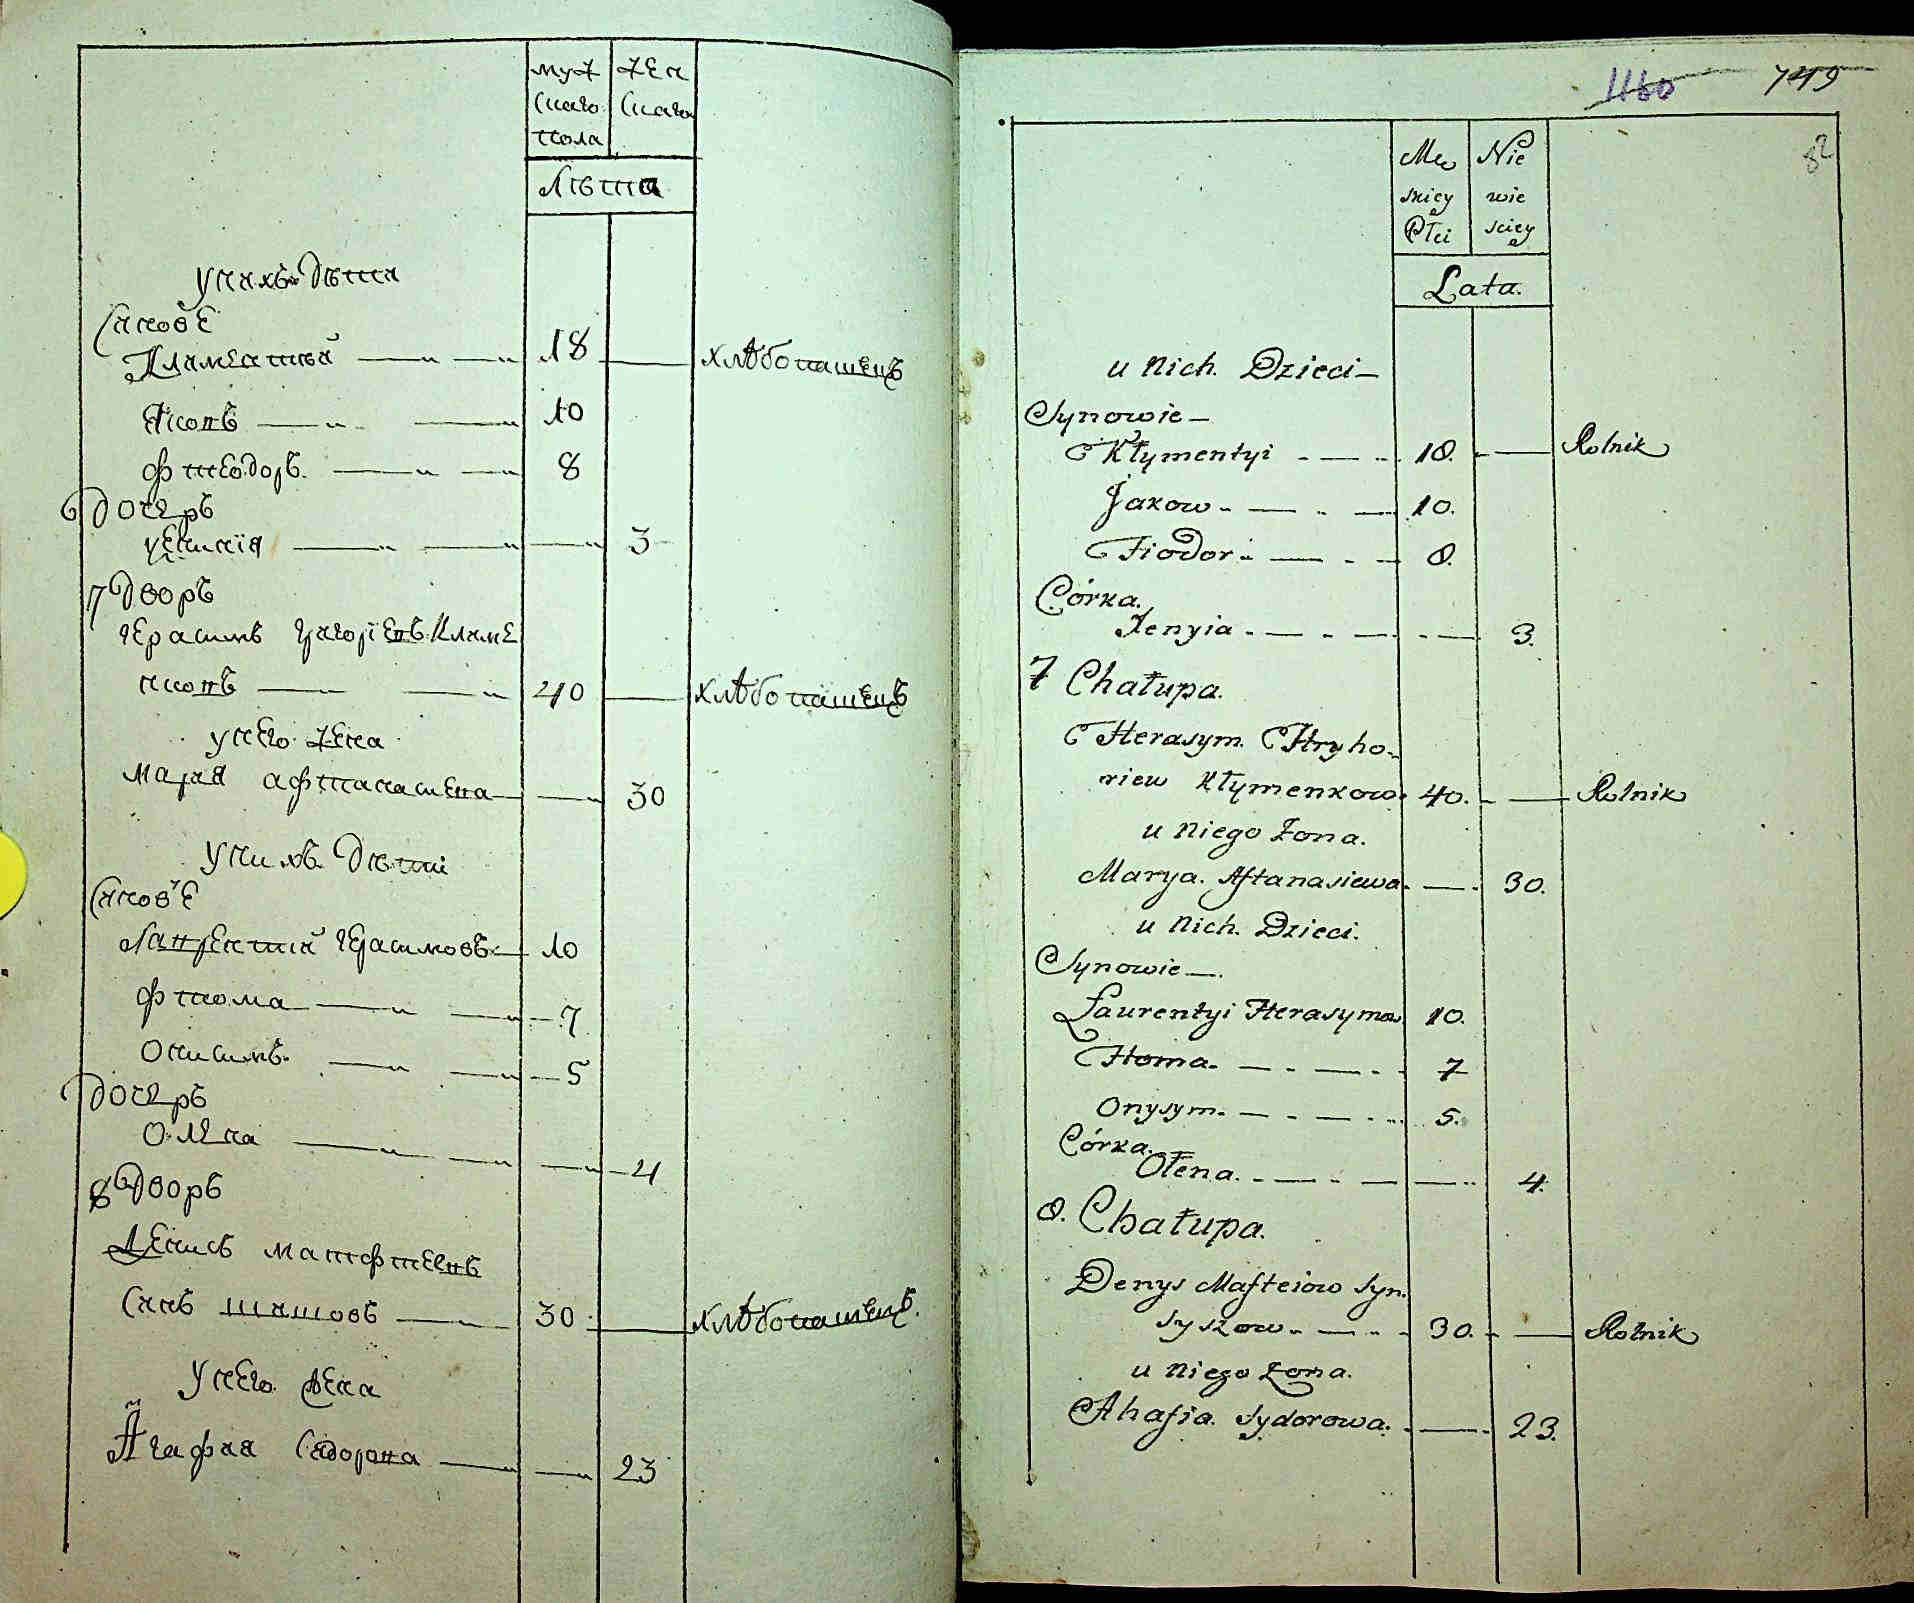 муж
скаго
пола
жен
скаго
лѣта
у нихъ дѣти
сынове
Климентий — — 18 — хлѣбопашецъ
Яковъ — — 10
Фтеодоръ. — — 8
дочерь
Ксения — — — 3
7 дворъ
Герасимъ Григориевъ Климе
нковъ — — 40 — хлѣбопашецъ
у него жена
Мария Афтанасиева — — 30
у нихъ дѣти
сынове
Лаврентий Герасимовъ — 10
Фтома — — 7
Онисимъ. — — 5
дочерь
Олена — — — 4
8 дворъ
Денисъ Матфтеевъ
сынъ — 30 — хлѣбопашецъ.
у него жена
Агафия Сидорова — — 23
1160 749
82
Mę
skiey
Płci
Nie
wie
sciey
Lata.
u Nich. Dzieci —
Synowie —
Kłymentyi - — - 18. - — Rolnik
Jakow - — . — 10.
Fiodor - — - — 8.
Córka.
Xenyia - — - — - — 3.
7 Chałupa.
Herasym. Hryho-
riew Kłymenkow. 40. - — Rolnik
u Niego Żona.
Marya. Aftanasiewa. — - 30.
u Nich. Dzieci.
Synowie —.
Laurentyi Herasymow 10.
Homa. — - — - - 7
Onysym. — - — - 5.
Córka.
Ołena. - — - — — - 4.
8. Chałupa.
Denys Mafteiow Syn.
Syszow - — - - 30. - — Rolnik
u Niego Żona.
Ahafia. Sydorowa. - — - 23.